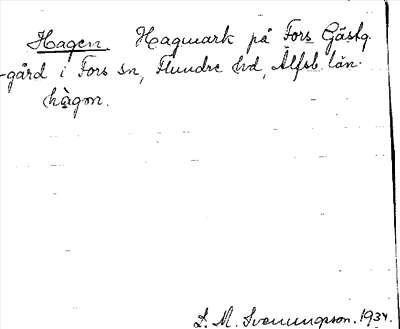 Hagen. Hagmark på Fors Gästg.
-gård i Fors sn, Flundre hd, Älfsb. län.
hàgɒn.
S. M. Svenungsson. 1934.